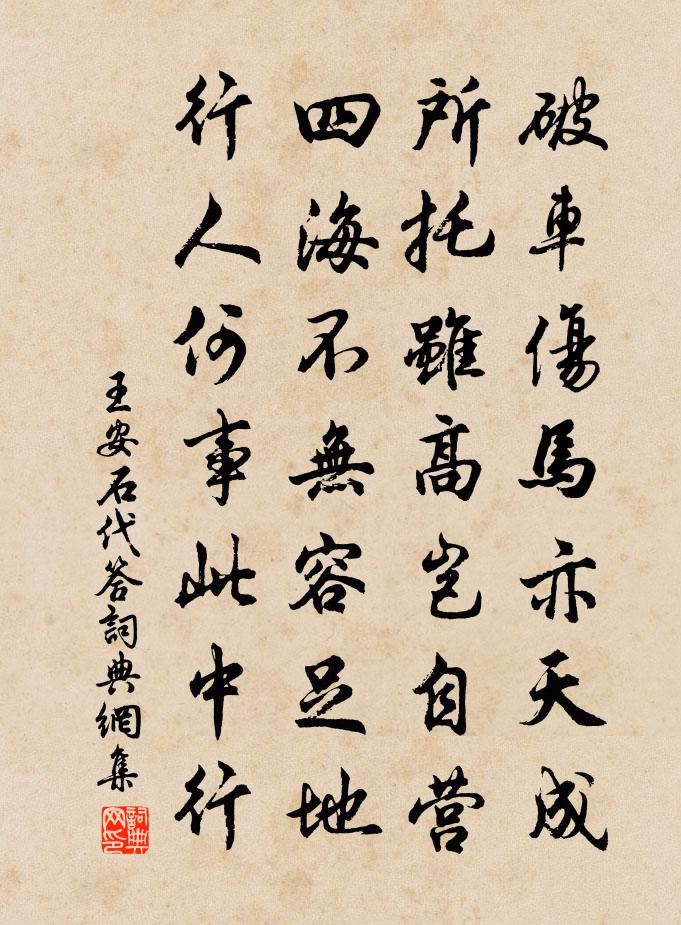 破車傷馬亦天成
所托雖高豈自营
四海不無容足地
行人何事此中行
王安石代答詞典網集
詞典网印